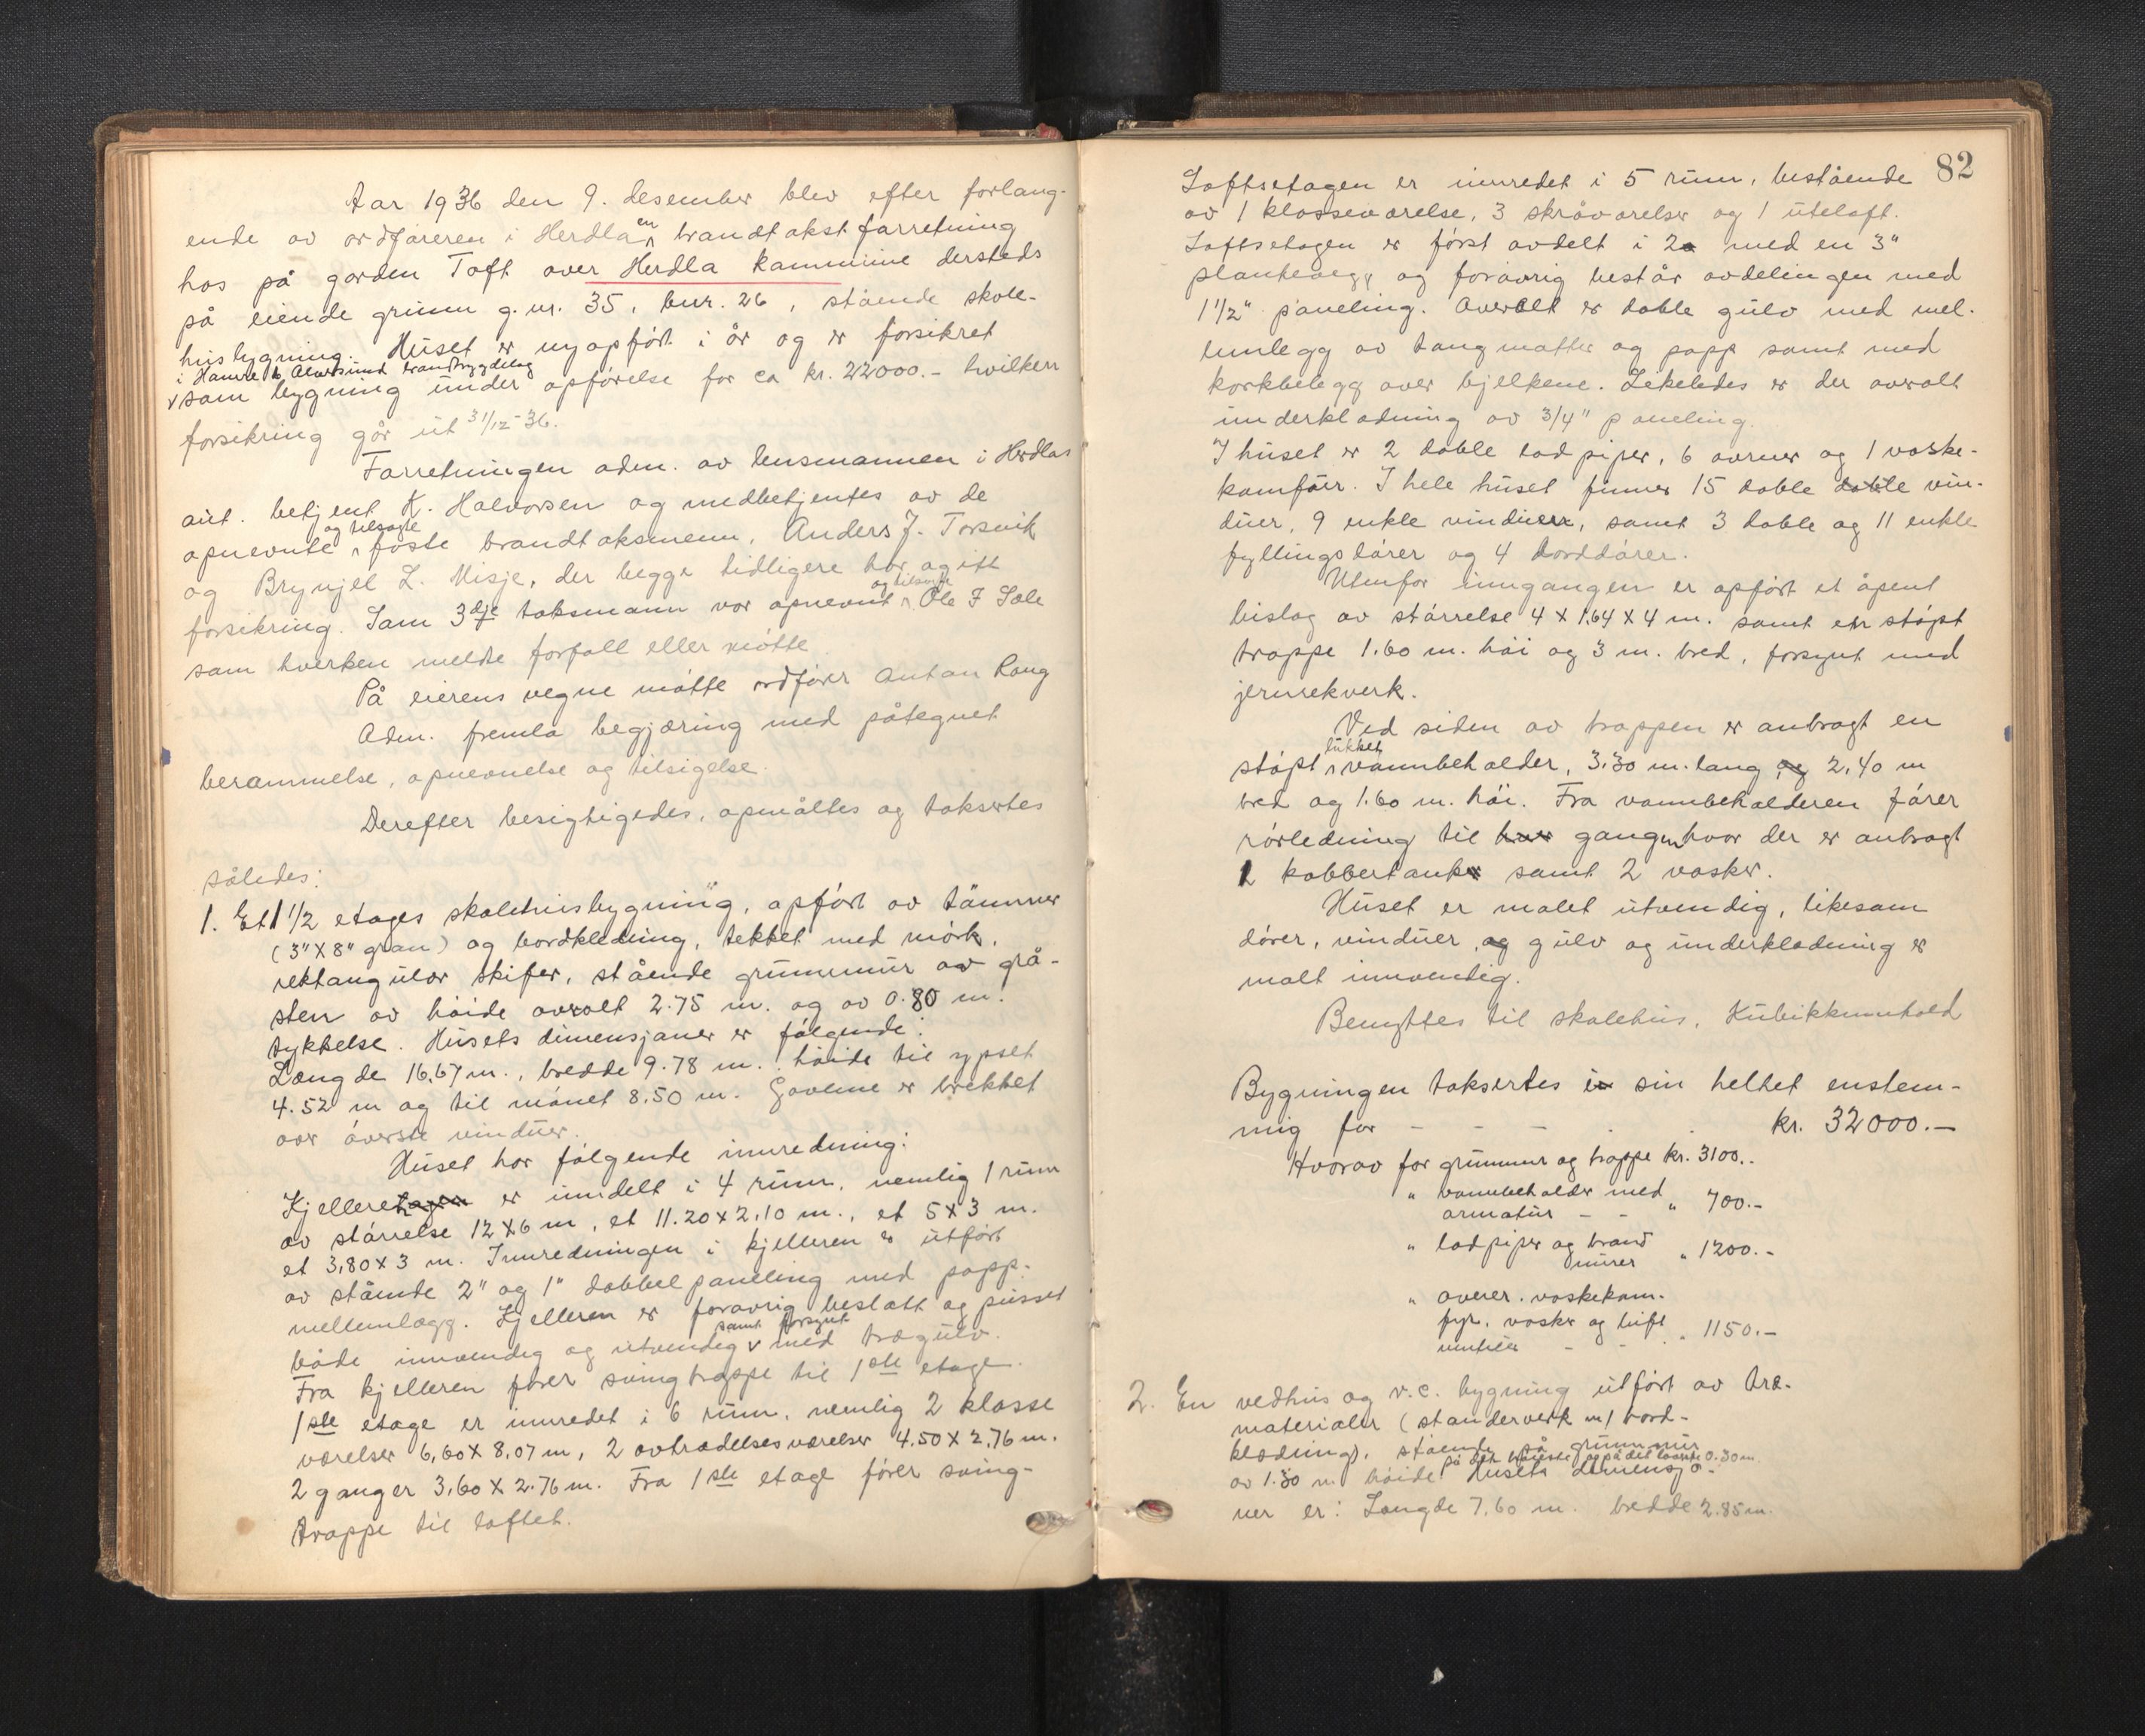 Aar 1936 den 9. desember blev efter forlang-
ende av ordføreren i Herdla en brandtakstforretning
hos på garden Toft over Herdla kommune dersteds
på eiende grunn g.nr. 35, bnr. 26, stående skole-
husbygning. Huset er nyopført i år og er forsikret
i Hamre & Alversund brandtrygdelag
som bygning under opførelse for ca kr. 22000.- hvilken
forsikring går ut 31/12-36.
Forretningen adm. av lensmannen i Herdlas
aut. betjent K. Halvorsen og medbetjentes av de
og tilsagte
opnevnte faste brandtaksmenn, Anders J. Torsvik
og Brynjel L. Misje, der begge tidligere har agitt
og tilsagt
forsikring. Som 3dje taksmann var opnevnt Ole F Sole
som hverken meldte forfall eller møtte.
På eierens vegne møtte ordfører Anton Rong
Adm. fremla begjæring med påtegnet
berammelse, opnevnelse og tilsigelse.
Derefter besigtigedes, opmåltes og taksertes
således:
1. Et 1 1/2 etages skolehusbygning, opført av tømmer
(3"X8" gran) og bordkledning, tekket med mørk,
rektangulær skifer, stående grunnmur av grå-
sten av høide overalt 2.75 m. og av 0.80 m.
tykkelse. Husets dimensjoner er følgende:
Længde 16,67 m., bredde 9.78 m., høide til gpset
4.52 m og til mønet 8.50 m. Gavlene er brekket
over øverste vinduer.
Huset har følgende innredning:
Kjelleretagen er inndelt i 4 rum, nemlig 1 rum
av størrelse 12X6 m, et 11.20X2,10 m., et 5X3 m.
et 3,80X3 m. Innredningen i kjelleren er utført
av stående 2" og 1" dobbel paneling med papp-
mellemlægg. Kjelleren er forøvrig beslått og pusset
samt forsynt
både innvendig og utvendig med trægulv.
Fra kjelleren fører svingtrappe til 1ste etage.
1ste etage er innredet i 6 rum, nemlig 2 klasse
værelser 6,60X8,07 m, 2 avtrædelsesværelser 4.50X2,76 m.
2 ganger 3,60X2.76 m. Fra 1ste etage fører sving-
trappe til loftet.
82
Loftsetagen er innredet i 5 rum, bestående
av 1 klasseværelse, 3 skråværelser og 1 uteloft.
Loftsetagen er først avdelt i 2 med en 3"
plankevegg og forøvrig består avdelingen med
1 1/2" paneling. Overalt er doble gulv med mel-
lemlegg av tangmatter og papp samt med
korkbelegg over bjelkene. Likeledes er der overalt
underklædning av 3/4" paneling.
I huset er 2 doble lodpiper, 6 ovner og 1 vaske-
komfør. I hele huset finnes 15 doble doble vin-
duer, 9 enkle vinduer, samt 3 doble og 11 enkle
fyllingsdører og 4 borddører.
Utenfor inngangen er opført et åpent
bislag av størrelse 4 X 1,64 X 4 m. samt en støpt
trappe 1.60 m. høi og 3 m. bred, forsynt med
jernrekverk.
Ved siden av trappen er anbragt en
lukket
støpt vannbeholder, 3.30 m. lang, og 2,40 m
bred og 1.60 m. høi. Fra vannbeholderen fører
rørledning til hver gangen hvor der er anbragt
2 kobbertanker samt 2 vasker.
Huset er malet utvendig, likesom
dører, vinduer, og gulv og underklædning er
malt innvendig.
Benyttes til skolehus. Kubikkinnhold
Bygningen taksertes i sin helhet enstem-
mig for - - - kr. 32000.-
Hvorav for grunnmur og trappe kr. 3100..
" vannbeholder med
armatur - - " 700.-
" lodpiper og brand
murer " 1200.-
" ovner. vaskekom-
fyr, vasker og luft
ventiler - - " 1150.-
2. En vedhus og v.c. bygning utført av træ-
materialer (standerverk m/ bord-
klædning), stående på grunnmur
på det høieste og på det laveste 0.30 m.
av 1.30 m høide. Husets dimensjo-
ner er: Længde 7,60 m. bredde 2.85 m.